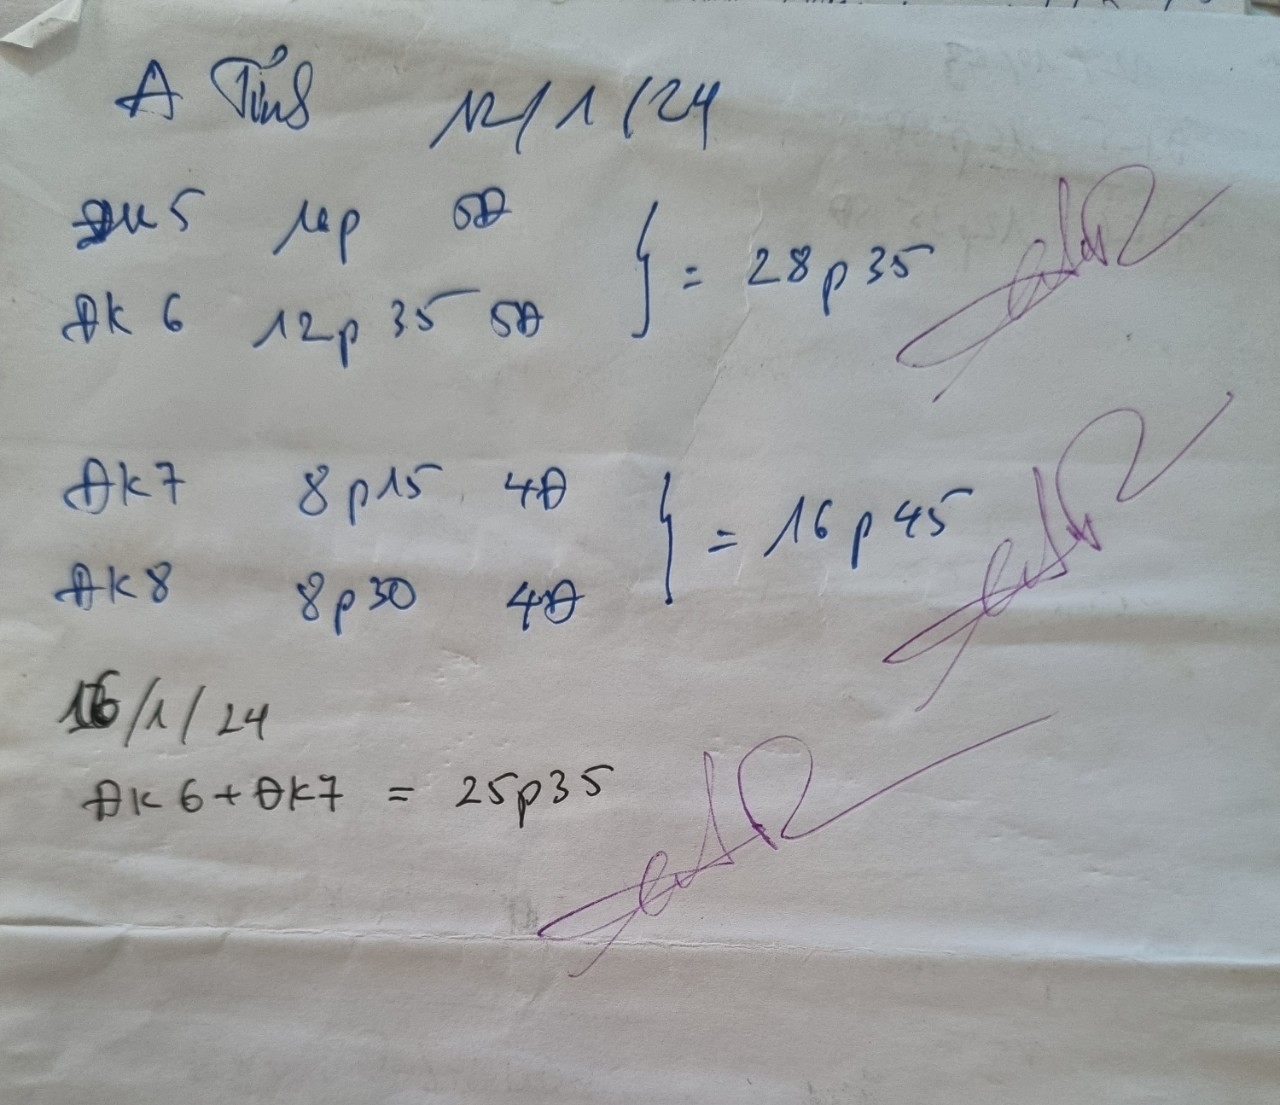 A Tính 12/1/24
ĐK 5 16p 5Đ
ĐK 6 12p 35 5Đ } = 28p 35
ĐK 7 8p15 4Đ
ĐK 8 8p30 4Đ } = 16p 45
16/1/24
ĐK 6 + ĐK7 = 25p35